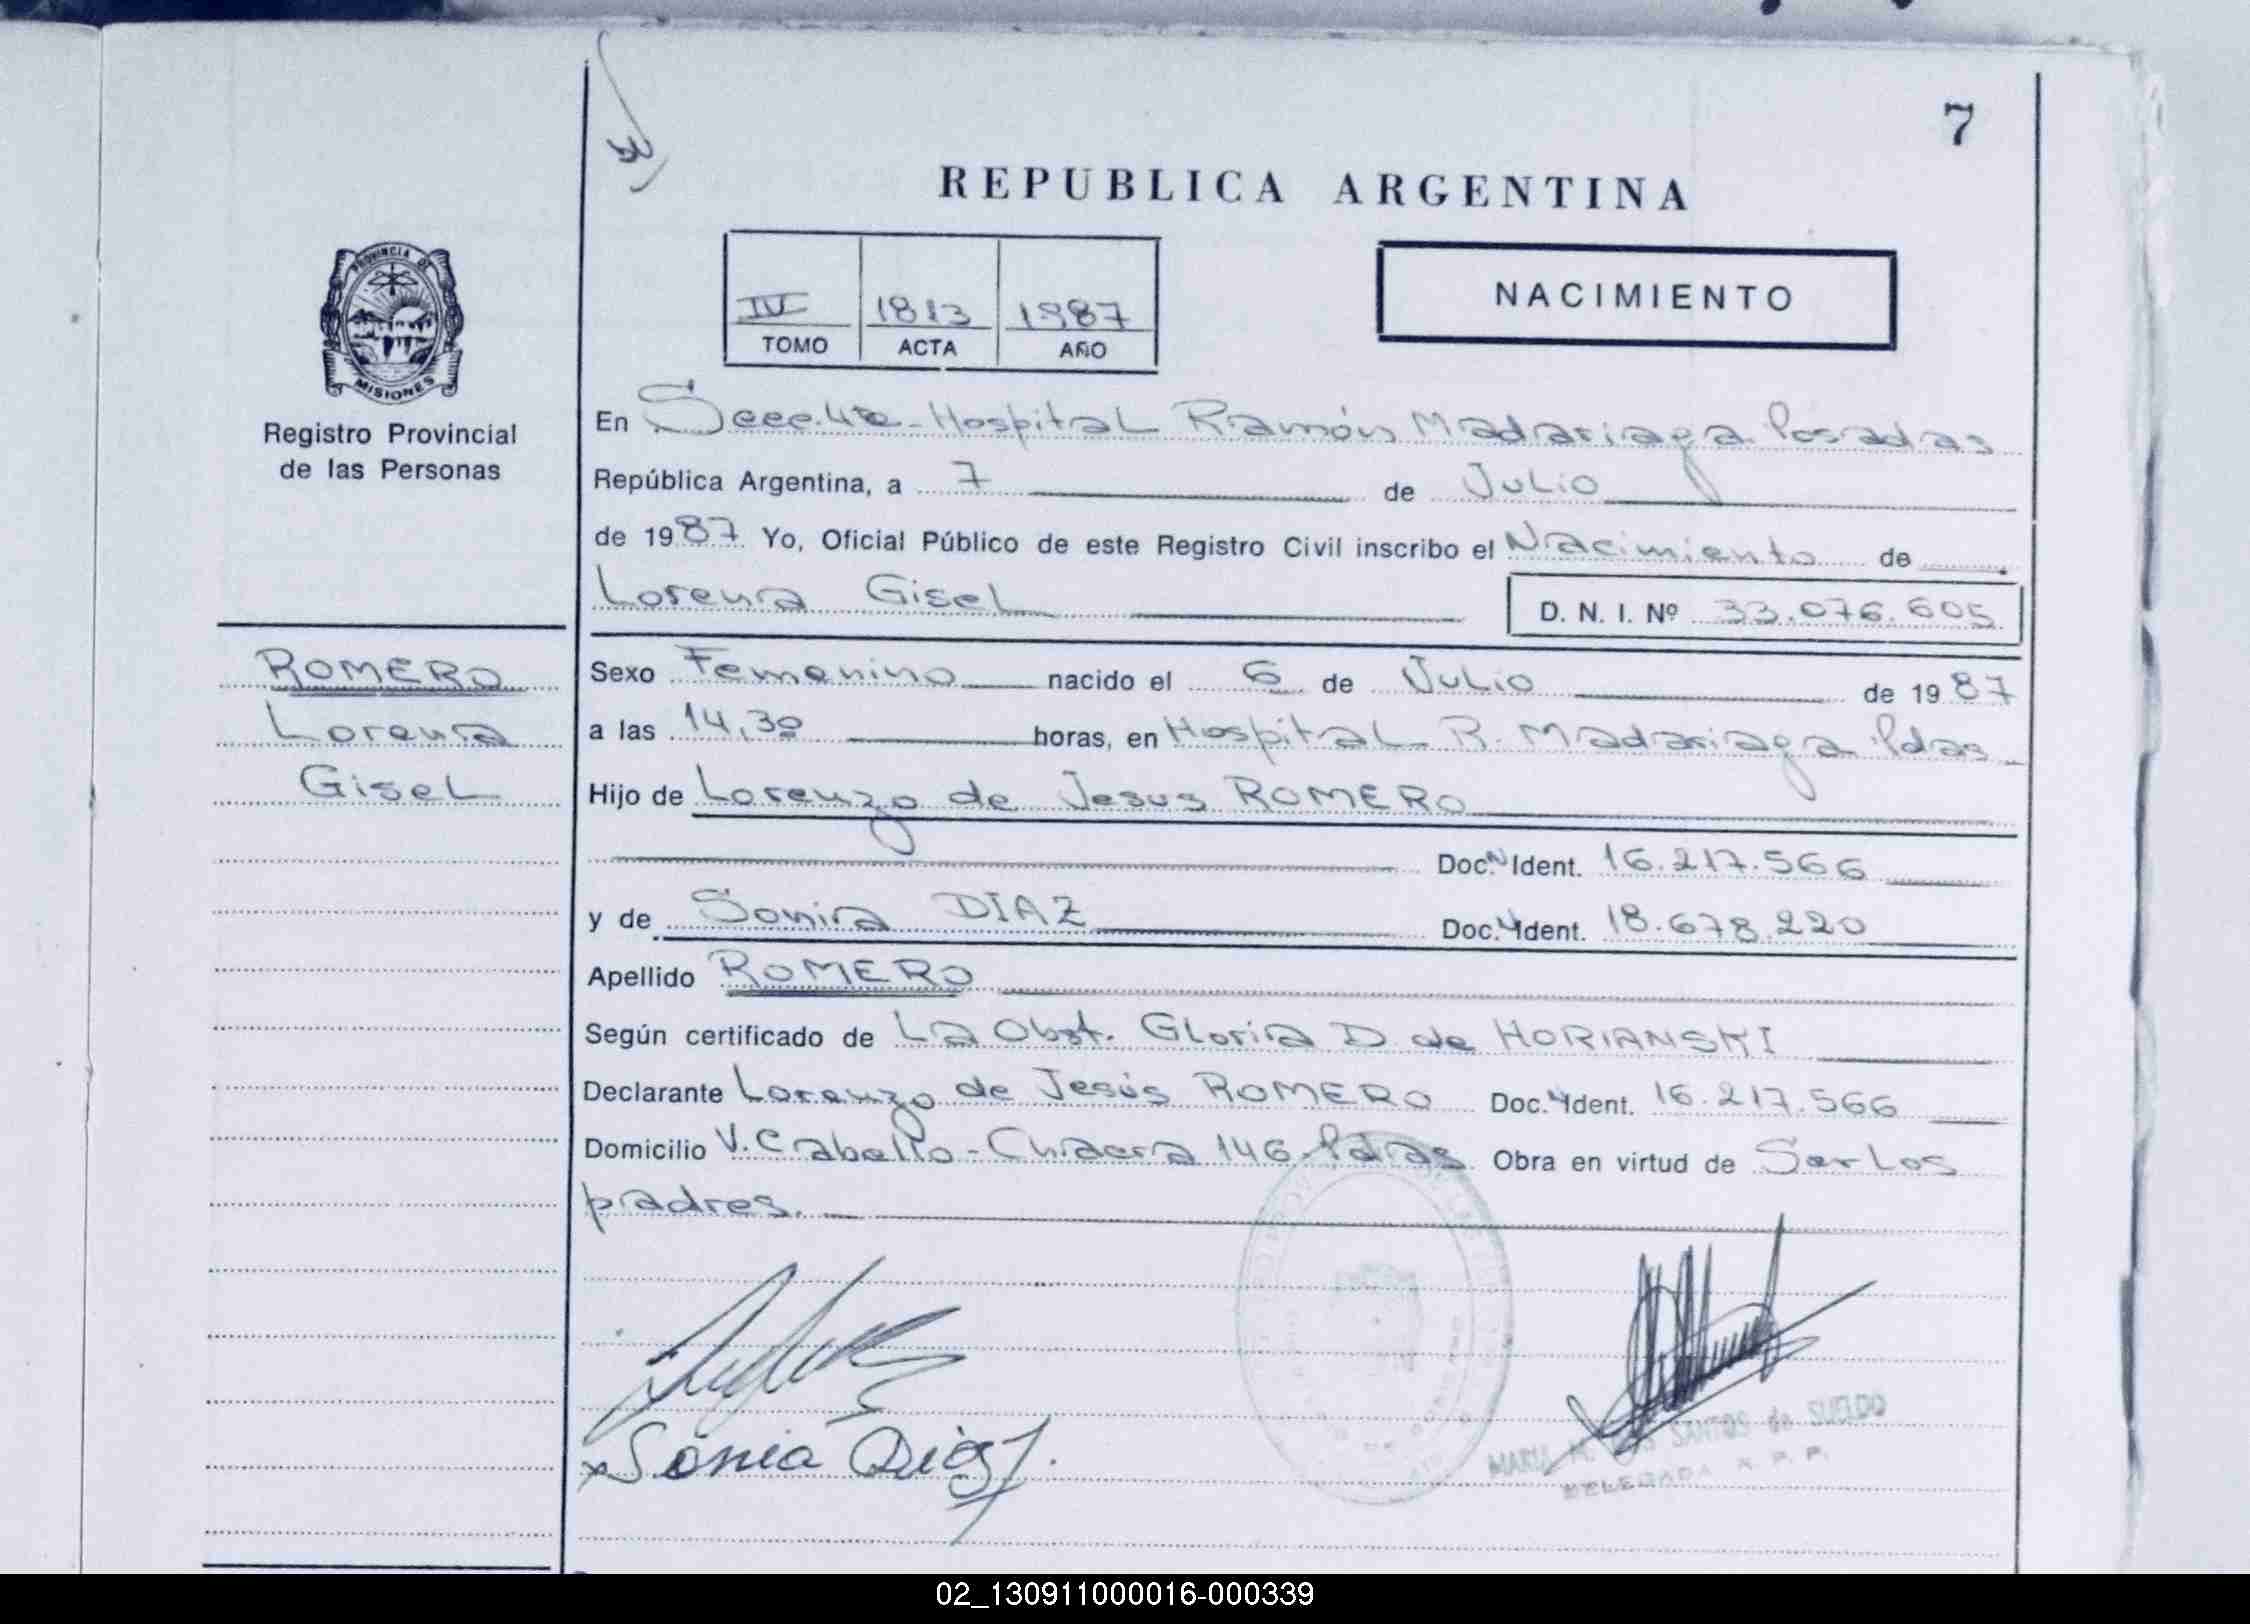 7
REPUBLICA ARGENTINA
PROVINCIA DE
MISIONES
Registro Provincial
de las Personas
IV 1813 1987
TOMO ACTA AÑO
NACIMIENTO
En Secc. 4ta - Hospital Ramón Madariaga Posadas
República Argentina, a 7 de Julio
de 1987 Yo, Oficial Público de este Registro Civil inscribo el Nacimiento de
Lorena Gisel
D. N. I. Nº 33.076.605
ROMERO
Lorena
Gisel
Sexo Femenino nacido el 6 de Julio de 1987
a las 14,30 horas, en Hospital R. Madariaga Pdas
Hijo de Lorenzo de Jesus ROMERO
Doc. Ident. 16.217.566
y de Sonia DIAZ Doc. Ident. 18.678.220
Apellido ROMERO
Según certificado de La Obst. Gloria D. de HORIANSKI
Declarante Lorenzo de Jesús ROMERO Doc. Ident. 16.217.566
Domicilio V. Cabello - Chacra 146 Pdas Obra en virtud de Ser Los
padres.
Sonia Diaz.
SANTOS de SUELDO
DELEGADA R. P. P.
02_130911000016-000339